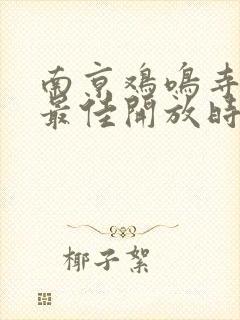 南京鸡鸣寺
最佳開放時
椰子絮